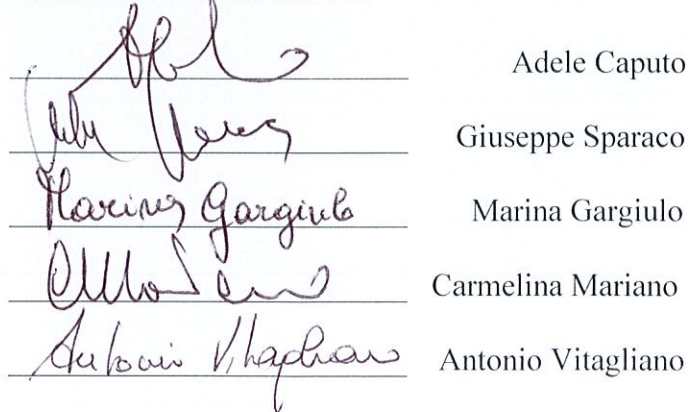 Adele Caputo
Giuseppe Sparaco
Marina Gargiulo Marina Gargiulo
Carmelina Mariano
Antonio Vitagliano Antonio Vitagliano